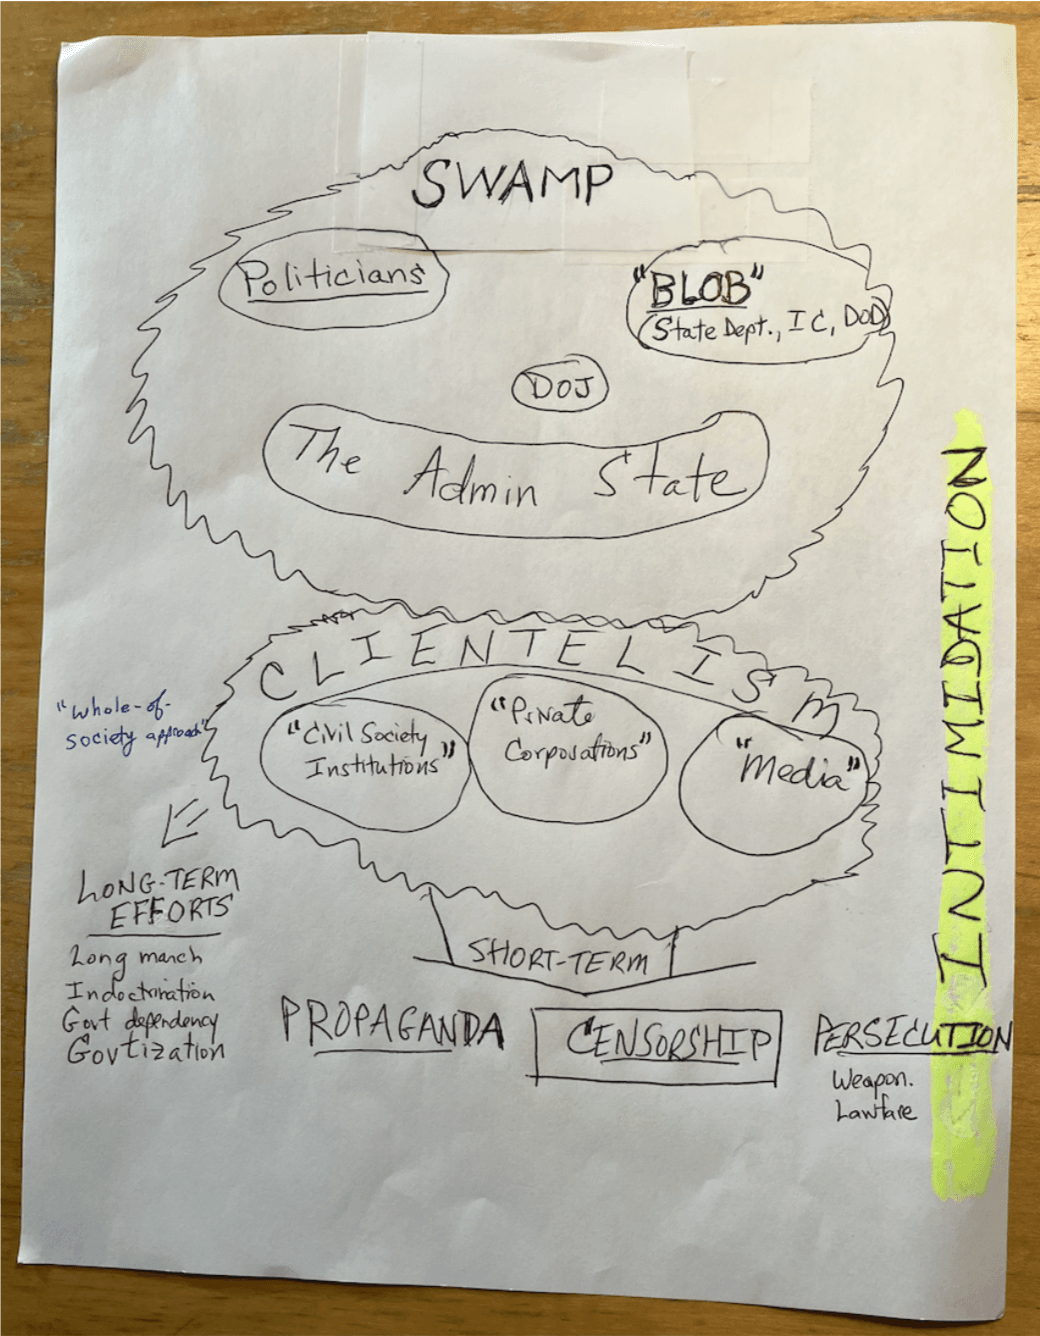 SWAMP
Politicians
"BLOB"
(State Dept., IC, DoD)
DOJ
The Admin State
CLIENTELISM
"Whole-of-
society approach"
"Civil Society
Institutions"
"Private
Corporations"
"Media"
INTIMIDATION
LONG-TERM
EFFORTS
Long march
Indoctrination
Govt dependency
Govtization
SHORT-TERM
PROPAGANDA
CENSORSHIP
PERSECUTION
Weapon.
Lawfare